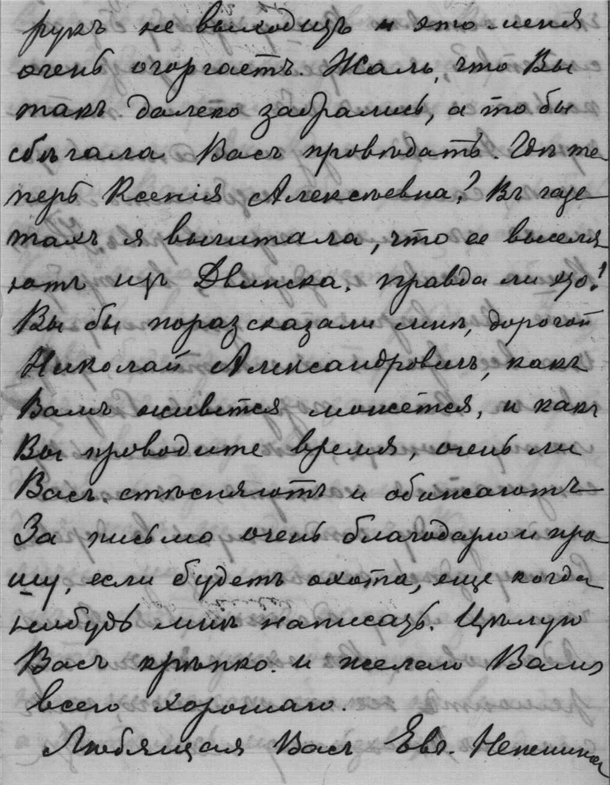 рукъ не выходитъ и это меня
очень огорчаетъ. Жаль, что Вы
такъ далеко забрались, а то бы
сбѣгала Васъ провѣдать. Гдѣ те
перь Ксенія Алексѣевна? Въ газе
тахъ я вычитала, что ее выселя
ютъ изъ Двинска, правда ли это?
Вы бы поразсказали мнѣ, дорогой
Николай Александровичъ, какъ
Вамъ живется можется, и какъ
Вы проводите время, очень ли
Васъ стѣсняютъ и обижаютъ
За письмо очень благодарю и про
шу, если будетъ охота, еще когда
нибудь мнѣ написать. Цѣлую
Васъ крѣпко и желаю Вамъ
всего хорошаго.
Любящая Васъ Евг.